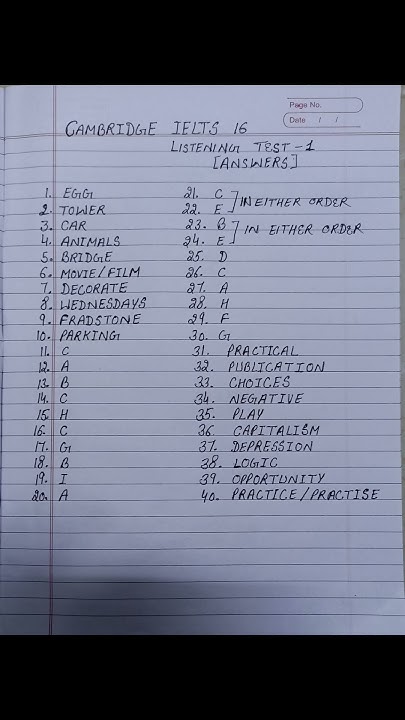 Page No.
Date / /
CAMBRIDGE IELTS 16
LISTENING TEST-1
[ANSWERS]
1. EGG
2. TOWER
3. CAR
4. ANIMALS
5. BRIDGE
6. MOVIE/FILM
7. DECORATE
8. WEDNESDAYS
9. FRADSTONE
10. PARKING
11. C
12. A
13. B
14. C
15. H
16. C
17. G
18. B
19. I
20. A
21. C
22. E ] IN EITHER ORDER
23. B
24. E ] IN EITHER ORDER
25. D
26. C
27. A
28. H
29. F
30. G
31. PRACTICAL
32. PUBLICATION
33. CHOICES
34. NEGATIVE
35. PLAY
36. CAPITALISM
37. DEPRESSION
38. LOGIC
39. OPPORTUNITY
40. PRACTICE/PRACTISE